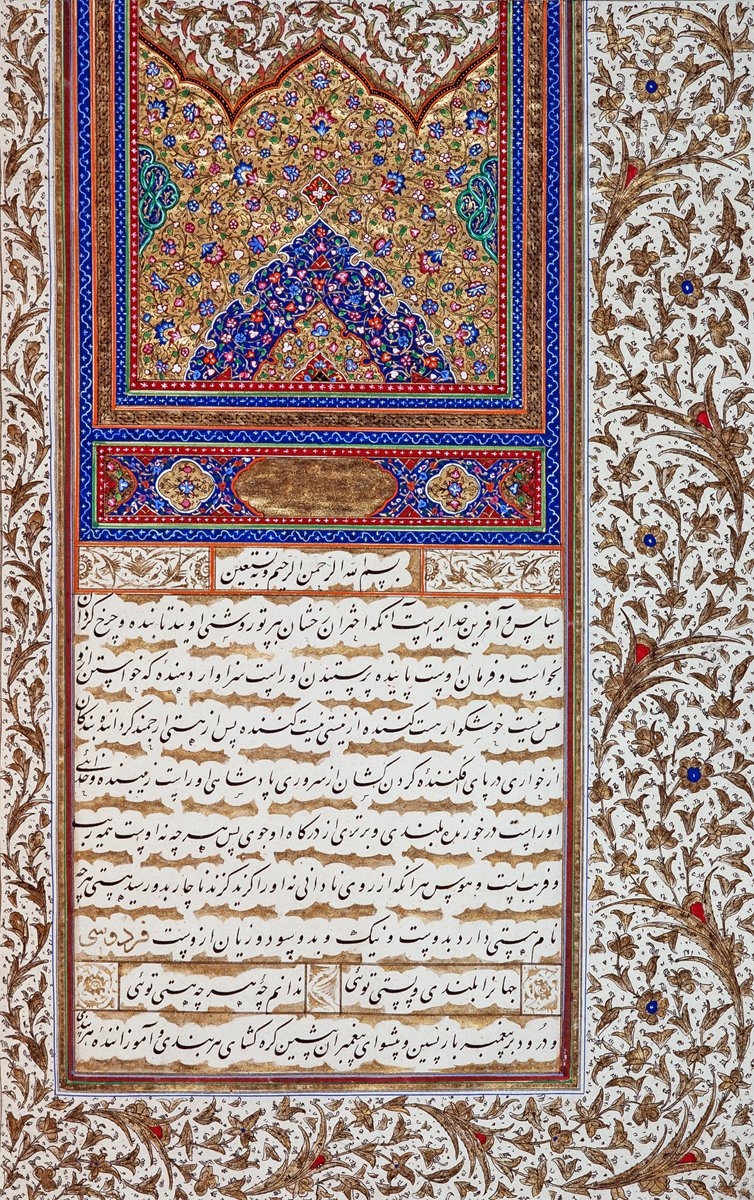 بسم الله الرحمن الرحیم و نستعین
سپاس و آفرین خدایراست آنکه اختران رخشان بپرتو روشنی او بند تابنده و چرخ گردان
بخواست و فرمان اوست پاینده پرستیدن اوراست سزاوار دهنده که خواستن ازو
مس نیست خوشگوار هست کننده از نیستی نیست کننده پس از هستی ارجمند گرداننده بندگان
از خواری در پای افکننده گردن کشان از سروری پادشاهی اوراست زیبنده و خدائی
اوراست درخورنده بلندی و برتری از درگاه او جوی و بس هرچه نه اوست نمیه
و هوس هرانکه از روی نادانی نه اورا گزید گزند ناچار بدو رسید هستی هرچه
نام هستی دارد بدوست و نیک و بد و سود و زیان ازوست فردوسی
جهانرا بلندی و پستی توئی ندانم چهٔ هر چه هستی توئی
و درود بر پیغمبر بازپسین و پیشوای پیغمبران پیشین گره گشای هر بندی و آموزانندهٔ هر پندی